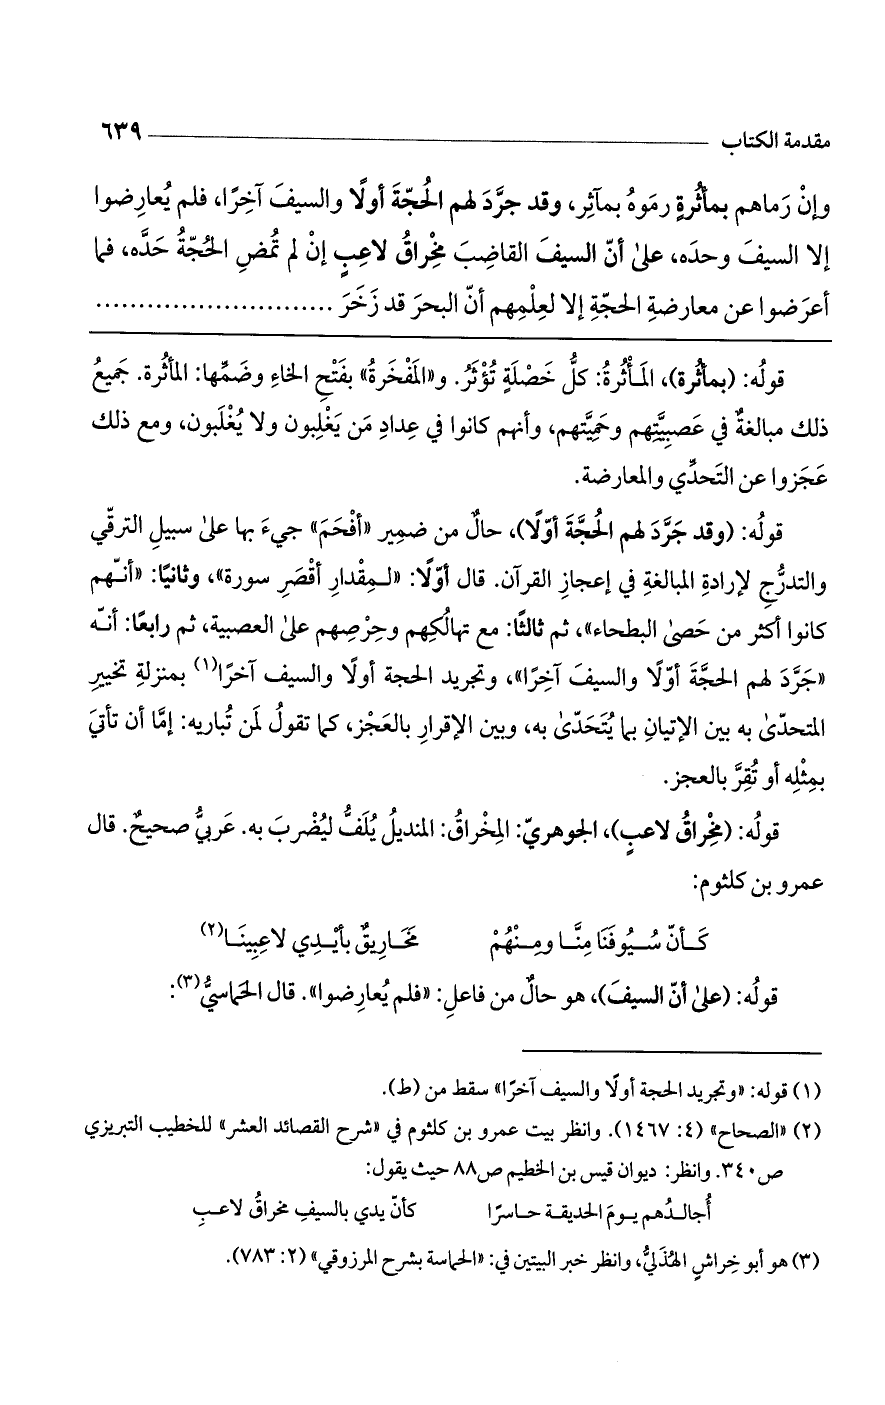 مقدمة الكتاب ٦٣٩
وإنْ رَماهم بمأثُرةٍ رمَوهُ بمآثِر، وقد جرَّدَ لهم الحُجّةَ أولًا والسيفَ آخِرًا، فلم يُعارِضوا
إلا السيفَ وحدَه، علىٰ أنّ السيفَ القاضِبَ مِخْراقُ لاعِبٍ إنْ لم تُمضِ الحُجّةُ حَدَّه، فما
أعرَضوا عن معارضةِ الحجّةِ إلا لعِلْمِهم أنّ البحرَ قد زَخَرَ ............................
قولُه: (بمأثُرة)، المَأْثُرةُ: كلُّ خَصْلَةٍ تُؤْثَرُ. و«المَفْخَرةُ» بفَتْحِ الخاءِ وضَمِّها: المأثُرة. جَميعُ
ذلك مبالغةٌ في عَصبِيَّتِهم وحَمِيَّتِهم، وأنهم كانوا في عِدادِ مَن يَغْلِبون ولا يُغْلَبون، ومع ذلك
عَجَزوا عن التَحدِّي والمعارضة.
قولُه: (وقد جَرَّدَ لهم الحُجَّةَ أوّلًا)، حالٌ من ضميرِ «أفْحَمَ» جيءَ بها علىٰ سبيلِ الترقّي
والتدرُّجِ لإرادةِ المبالغةِ في إعجازِ القرآن. قال أوّلًا: «لـمِقْدارِ أقْصَرِ سورة»، وثانيًا: «أنـّهم
كانوا أكثر من حَصىٰ البطحاء»، ثم ثالثًا: مع تهالُكِهم وحِرْصِهم علىٰ العصبية، ثم رابعًا: أنـّه
«جَرَّدَ لهم الحجَّةَ أوّلًا والسيفَ آخِرًا»، وتجريد الحجة أولًا والسيف آخرًا(١) بمنزلةِ تخييرِ
المتحدّىٰ به بين الإتيانِ بما يُتَحَدّىٰ به، وبين الإقرارِ بالعَجْز، كما تقولُ لمَن تُباريه: إمَّا أن تأتيَ
بمِثْلِه أو تُقِرَّ بالعجز.
قولُه: (مِخْراقُ لاعبٍ)، الجوهريّ: المِخْراقُ: المنديلُ يُلَفُّ ليُضْربَ به. عَربيٌّ صحيحٌ. قال
عمرو بن كلثوم:
كـأنّ سُـيُوفَنَا مِنَّـا ومِـنْهُمْ مَخَـاريقٌ بأيْـدِي لاعِبِينَـا(٢)
قولُه: (علىٰ أنّ السيفَ)، هو حالٌ من فاعلِ: «فلم يُعارِضوا». قال الحَماسيُّ(٣):
(١) قوله: «وتجريد الحجة أولًا والسيف آخرًا» سقط من (ط).
(٢) «الصحاح» (٤: ١٤٦٧). وانظر بيت عمرو بن كلثوم في «شرح القصائد العشر» للخطيب التبريزي
ص٣٤٠. وانظر: ديوان قيس بن الخطيم ص٨٨ حيث يقول:
أُجالـدُهم يـومَ الحديقـة حـاسرًا كأنّ يدي بالسيفِ مخراقُ لاعـبِ
(٣) هو أبو خِراشٍ الهُذَليُّ، وانظر خبر البيتين في: «الحماسة بشرح المرزوقي» (٢: ٧٨٣).